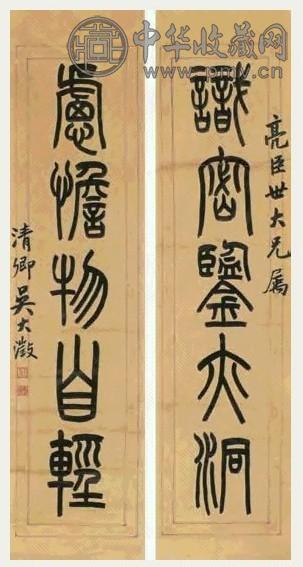 中华收藏网
亮臣世大兄属
識密鑒亦洞
慮憺物自輕
清卿吴大澂